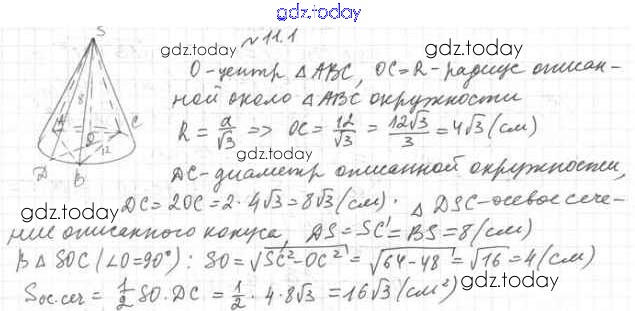 gdz.today
№11.1
gdz.today
gdz.today
S
8
A
O
C
12
D
B
O-центр △ABC, OC=R-радиус описан-
ной около △ABC окружности
R = a/√3 => OC = 12/√3 = 12√3/3 = 4√3 (см)
gdz.today
DC-диаметр описанной окружности,
gdz.today
DC = 2OC = 2 · 4√3 = 8√3 (см). △DSC-осевое сече-
ние описанного конуса, DS = SC = BS = 8 (см)
В △SOC (∠O=90°): SO = √SC²-OC² = √64-48 = √16 = 4 (см)
Sос.сеч = 1/2 SO·DC = 1/2 · 4 · 8√3 = 16√3 (см²)
gdz.today